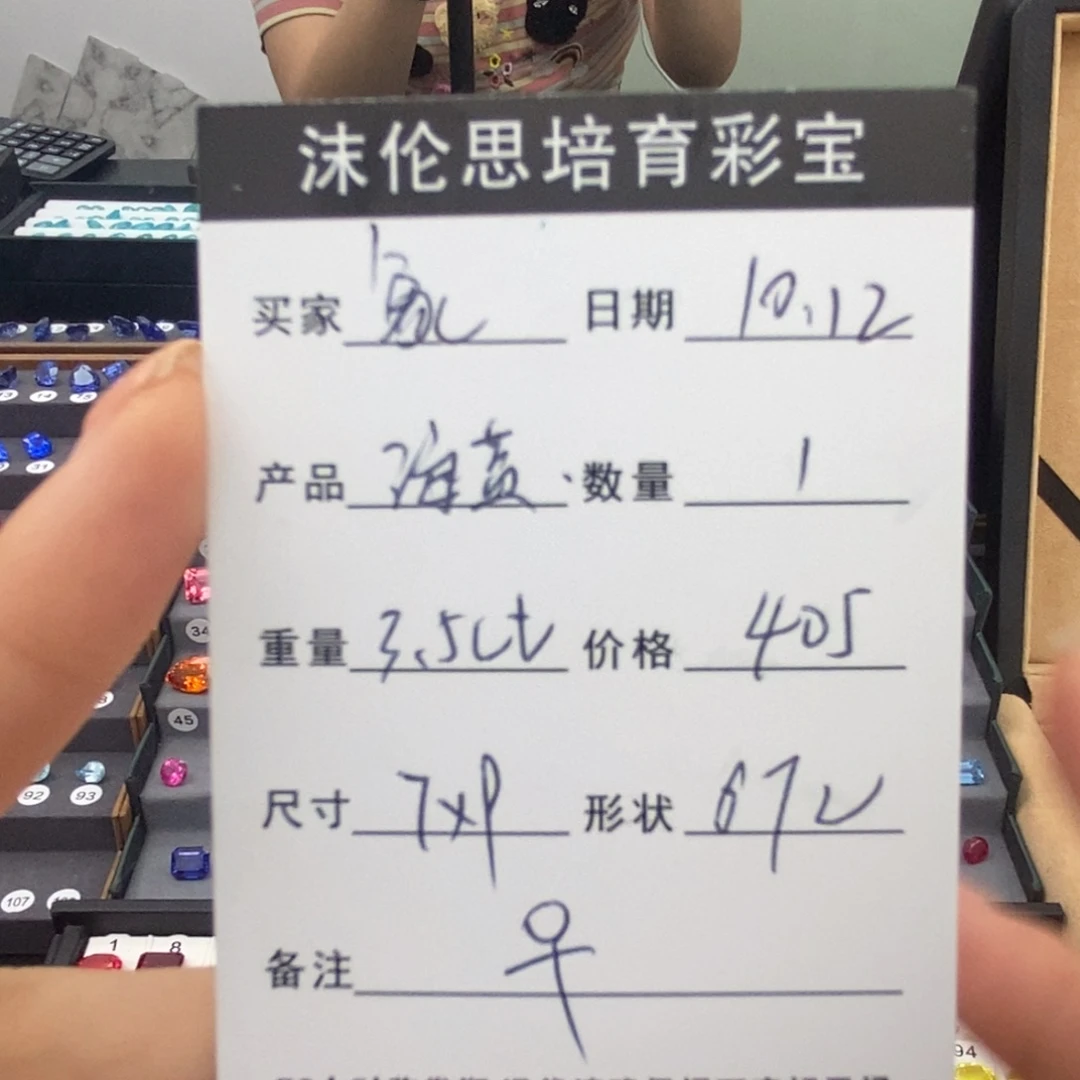 沫伦思培育彩宝
买家 日期 10.12
产品 海蓝 数量 1
重量 3.5ct 价格 405
尺寸 7x9 形状
备注
14 15
31
34
45
92 93
107
1 8
94